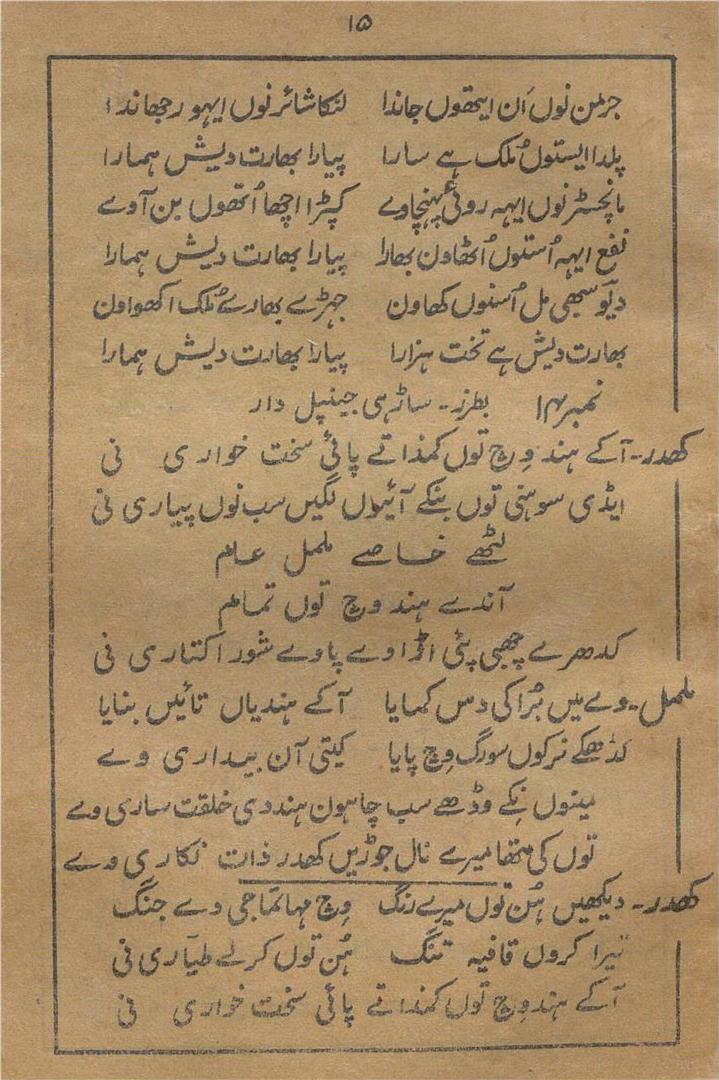 ۱۵
جرمن نوں اَن ایتھوں جاندا لنکا شائر نوں ایہو رجھاندا
پلدا ایستوں مُلک ہے سارا پیارا بھارت دیش ہمارا
مانچسٹر نوں ایہہ روئی پہنچاوے کپڑا اچھا اُتھوں بن آوے
نفع ایہہ اُستوں اُٹھاون بھارا پیارا بھارت دیش ہمارا
دیَو سبھی مل اُسنوں کھاون جہڑے بھارے مُلک اکھواون
بھارت دیش ہے تخت ہزارا پیارا بھارت دیش ہمارا
نمبر ۱۴ بطرز۔ ساڑہی جینپل دار
کھدر۔ آکے ہند وِچ توں کمذاتے پائی سخت خواری نی
ایڈی سوہنی توں بنکے آئیوں لگیں سب نوں پیاری نی
لٹھے خاصے ململ عام
آندے ہند وچ توں تمام
کدھرے چھبی پئی اڈاوے پاوے شور اکتاری نی
ململ۔ وے میں بُرا کی دس کمایا آکے ہندیاں تائیں بنایا
کڈھکے نرکوں سورگ وِچ پایا کیتی آن بیداری وے
مینوں نِکے وڈھے سب چاہون ہند دی خلقت ساری وے
توں کی متھا میرے نال جوڑیں کھدر ذات نکاری وے
کھدر۔ دیکھیں ہُن توں میرے رنگ وِچ مہاتما جی دے جنگ
تیرا کروں قافیہ تنگ ہُن توں کرلے طیّاری نی
آکے ہند وِچ توں کمذاتے پائی سخت خواری نی